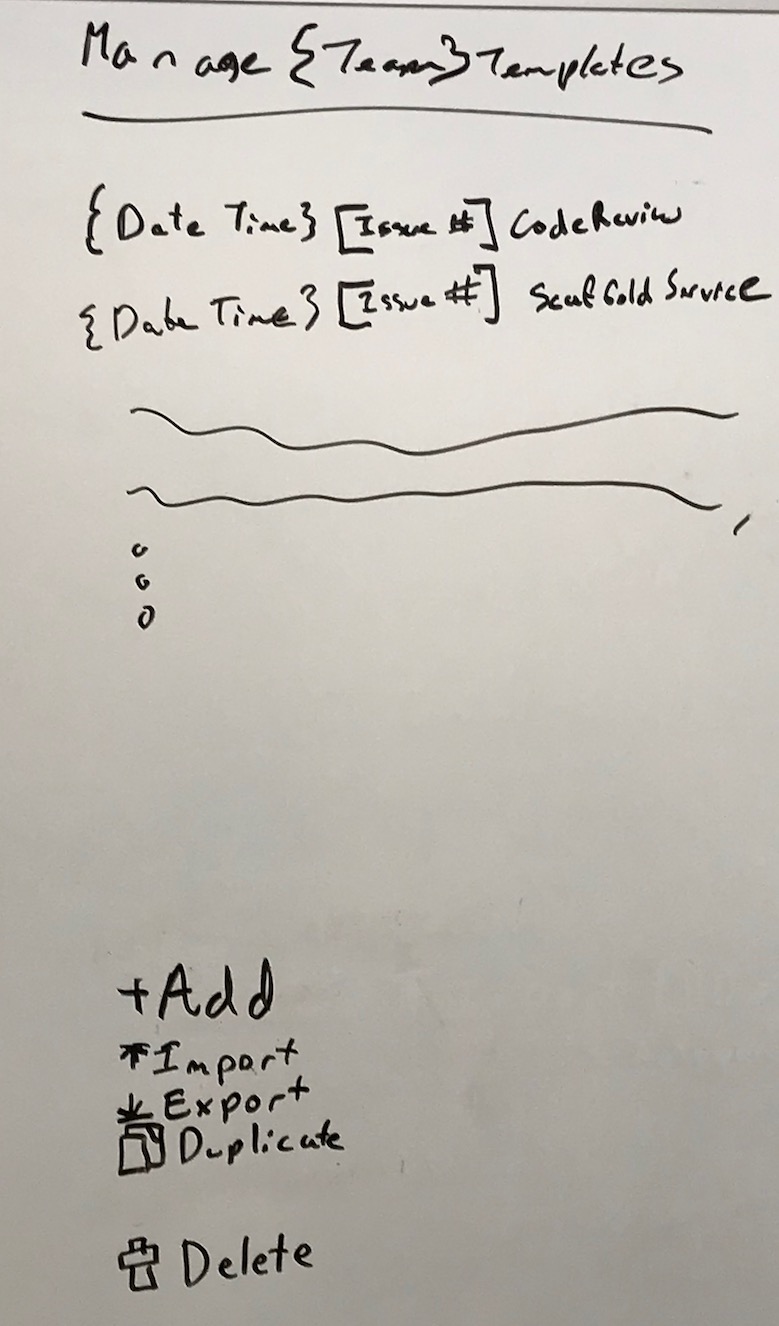 Manage {Team} Templates
{Date Time} [Issue #] Code Review
{Date Time} [Issue #] Scaffold Service
+Add
Import
Export
Duplicate
Delete